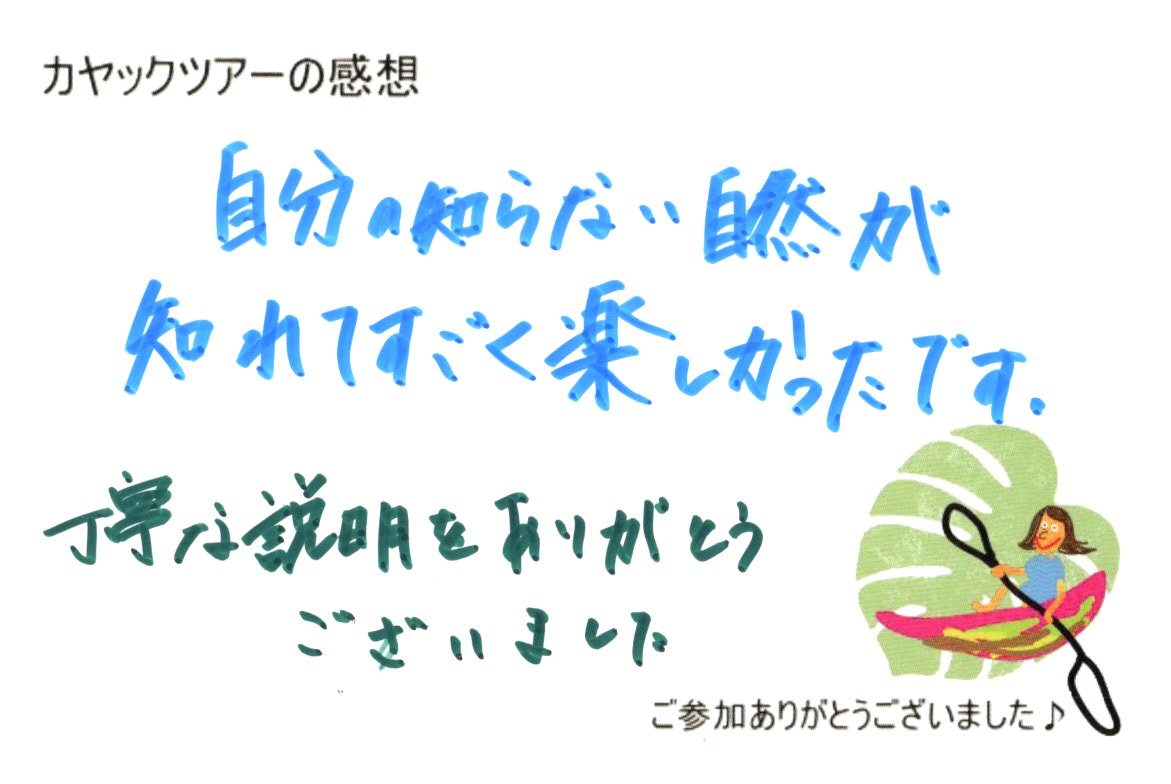 カヤックツアーの感想
自分の知らない自然が
知れてすごく楽しかったです.
丁寧な説明をありがとう
ございました
ご参加ありがとうございました♪